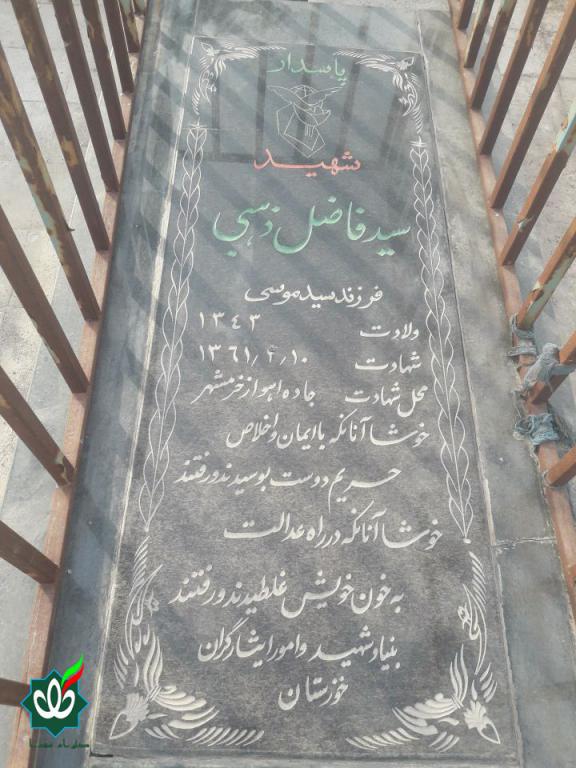 پاسدار
شهید
سید فاضل ذهبی
فرزند سید موسی
ولادت ۱۳۴۳
شهادت ۱۳۶۱/۲/۱۰
محل شهادت جاده اهواز خرمشهر
خوشا آنانکه با ایمان و اخلاص
حریم دوست بوسیدند و رفتند
خوشا آنانکه در راه عدالت
به خون خویش غلطیدند و رفتند
بنیاد شهید و امور ایثارگران
خوزستان